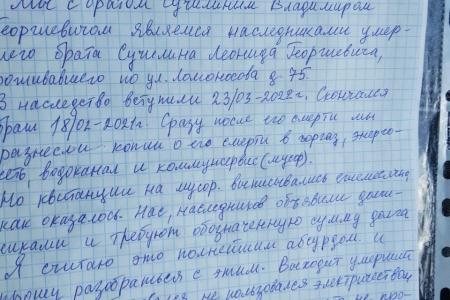 Мы с братом Сучилиным Владимиром
Георгиевичом являемся наследниками умер-
шего брата Сучилина Леонида Георгиевича,
роживавшего по ул. Ломоносова д. 75
В наследство вступили 23/03-2022г. Скончался
брат 18/02-2021г. Сразу после его смерти мы
разнесли копии о его смерти в горгаз, энерго-
сеть, водоканал и коммунсервис (мусор).
Но квитанции на мусор. выписывались ежемесячно
как оказалось. Нас, наследников объявили долж-
никами и требуют обозначенную сумму долга
Я считаю это полнейшим абсурдом. и
прошу разобраться с этим. Выходит умерший
не пользовался электричеством